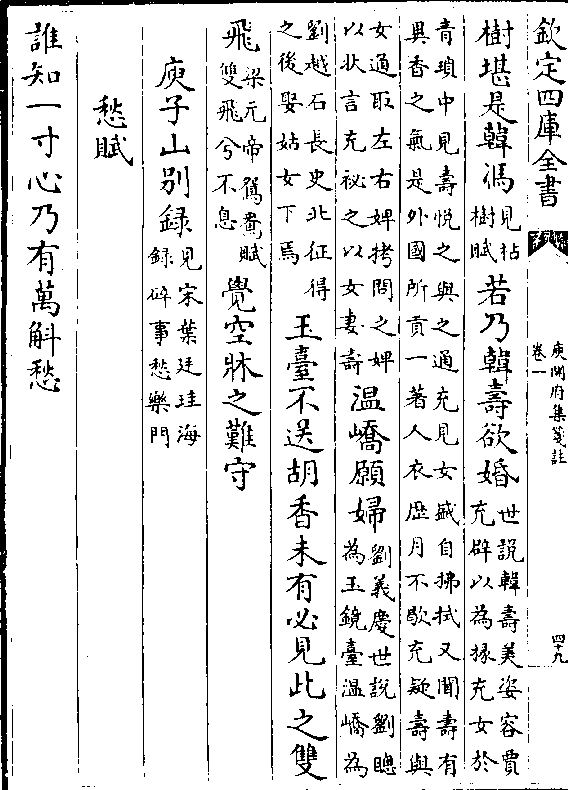 欽定四庫全書
庾開府集箋註
卷一
四十九
樹堪是韓馮見枯樹賦若乃韓壽欲婚世說韓壽美姿容賈充辟以為掾充女於
青瑣中見壽悅之與之通充見女盛自拂拭又聞壽有
異香之氣是外國所貢一著人衣歴月不歇充疑壽與
女通取左右婢拷問之婢以狀言充祕之以女妻壽温嶠願婦劉義慶世說劉聰為玉鏡臺温嶠為
劉越石長史北征得之後娶姑女下焉玉臺不送胡香未有必見此之雙
飛梁元帝鴛鴦賦雙飛兮不息覺空牀之難守
庾子山別録見宋葉廷珪海録碎事愁樂門
愁賦
誰知一寸心乃有萬斛愁